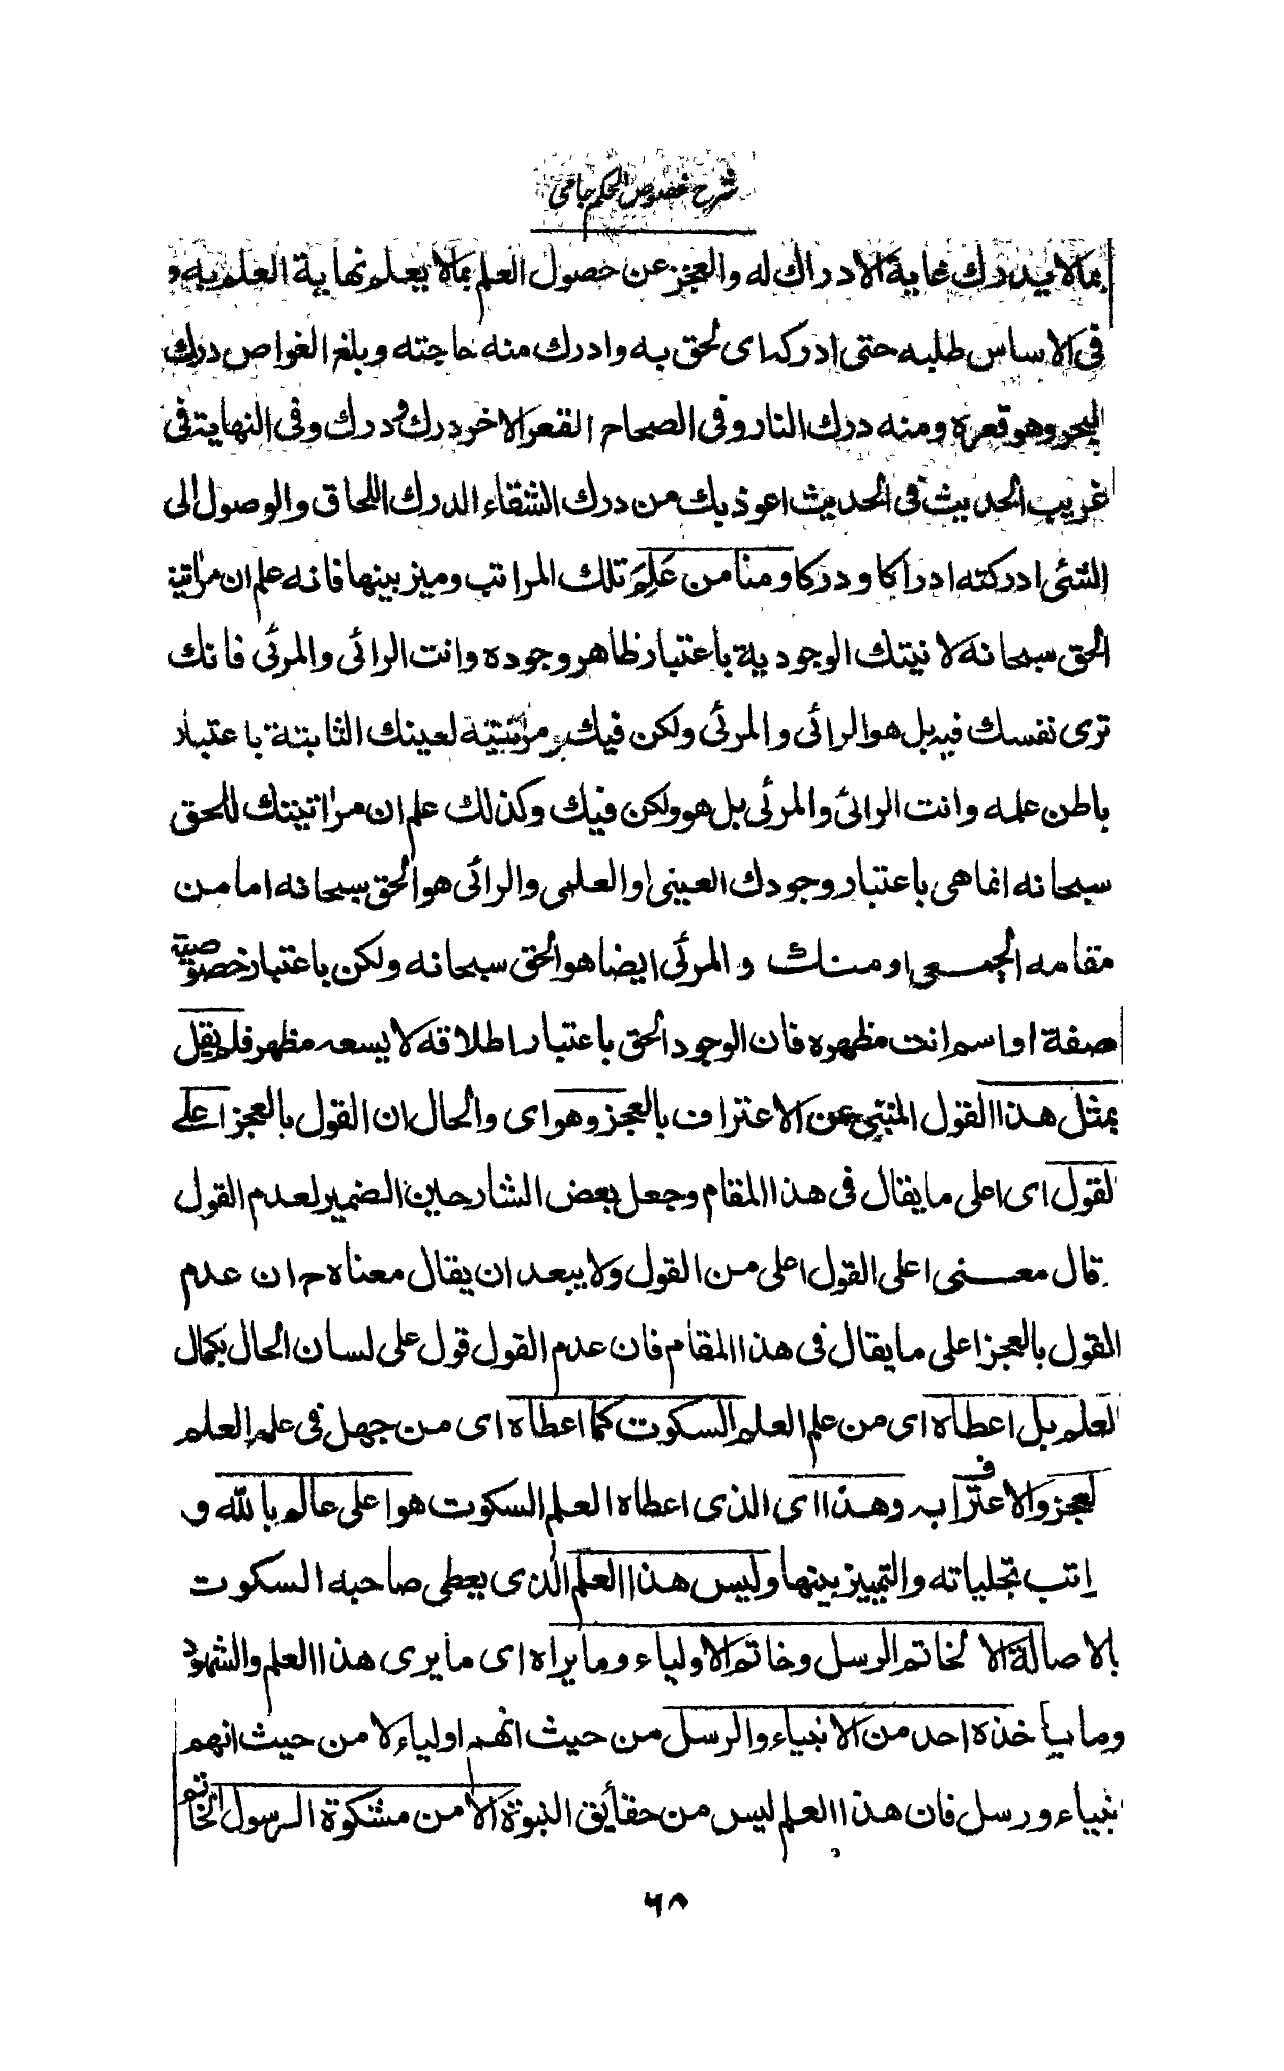 شرح فصوص الحكم جامى
بمالا يدرك غاية الادراك له والعجز عن حصول العلم بمالا يعلم نهاية العلم به و
فى الاساس طلبه حتى ادركه اى لحق به وادرك منه حاجته وبلغ الغواص درك
البحر وهو قعره ومنه درك النار وفى الصحاح القعر الاخر درك ودرك وفى النهاية فى
غريب الحديث فى الحديث اعوذ بك من درك الشقاء الدرك اللحاق والوصول الى
الشئى ادركته ادراكا ودركا ومنا من عَلِمَ تلك المراتب وميز بينها فانه علم ان مراتية
الحق سبحانه لانيتك الوجودية باعتبار ظاهر وجوده وانت الرائى والمرئى فانك
ترى نفسك فيه بل هو الرائى والمرئى ولكن فيك ومراتيته لعينك الثابتة باعتبار
باطن علمه وانت الرائى والمرئى بل هو ولكن فيك وكذلك علم ان مراتيتك للحق
سبحانه انما هى باعتبار وجودك العينى او العلمى والرائى هو الحق سبحانه اما من
مقامه الجمعى او منك و المرئى ايضا هو الحق سبحانه ولكن باعتبار خصوصية
صفة او اسم انت مظهره فان الوجود الحق باعتبار اطلاقه لا يسعه مظهر فلم يقل
بمثل هذا القول المنبئ عن الاعتراف بالعجز وهو اى والحال ان القول بالعجز اعلے
لقول اى اعلى ما يقال فى هذا المقام وجعل بعض الشارحين الضمير لعدم القول
قال معنى اعلى القول اعلى من القول ولا يبعد ان يقال معناه ح ان عدم
القول بالعجز اعلى ما يقال فى هذا المقام فان عدم القول قول على لسان الحال بكمال
لعلم بل اعطاه اى من علم العلم السكوت كما اعطاه اى من جهل فى علم العلم
لعجز والاعتراف به وهذا اى الذى اعطاه العلم السكوت هو اعلى عالم بالله و
اتب تجلياته والتمييز بينها وليس هذا العلم الذى يعطى صاحبه السكوت
بالاصالة الا لخاتم الرسل وخاتم الاولياء وما يراه اى ما يرى هذا العلم والشهود
وما ياخذه احد من الانبياء والرسل من حيث انهم اولياء لا من حيث انهم
نبياء ورسل فان هذا العلم ليس من حقائق النبوة الا من مشكوة الرسول الخاتم
٦٨